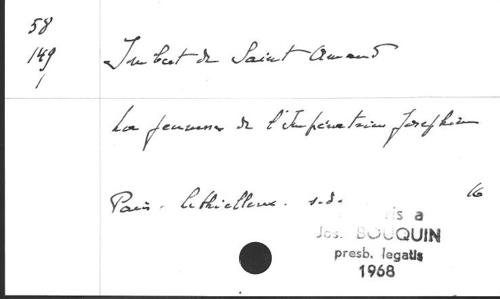 58
149
1
Imbert de Saint Amand
La jeunesse de l'Impératrice Joséphine
Paris. Lethielleux. s.d. 16
is a
Jos. BOUQUIN
presb. legatis
1968